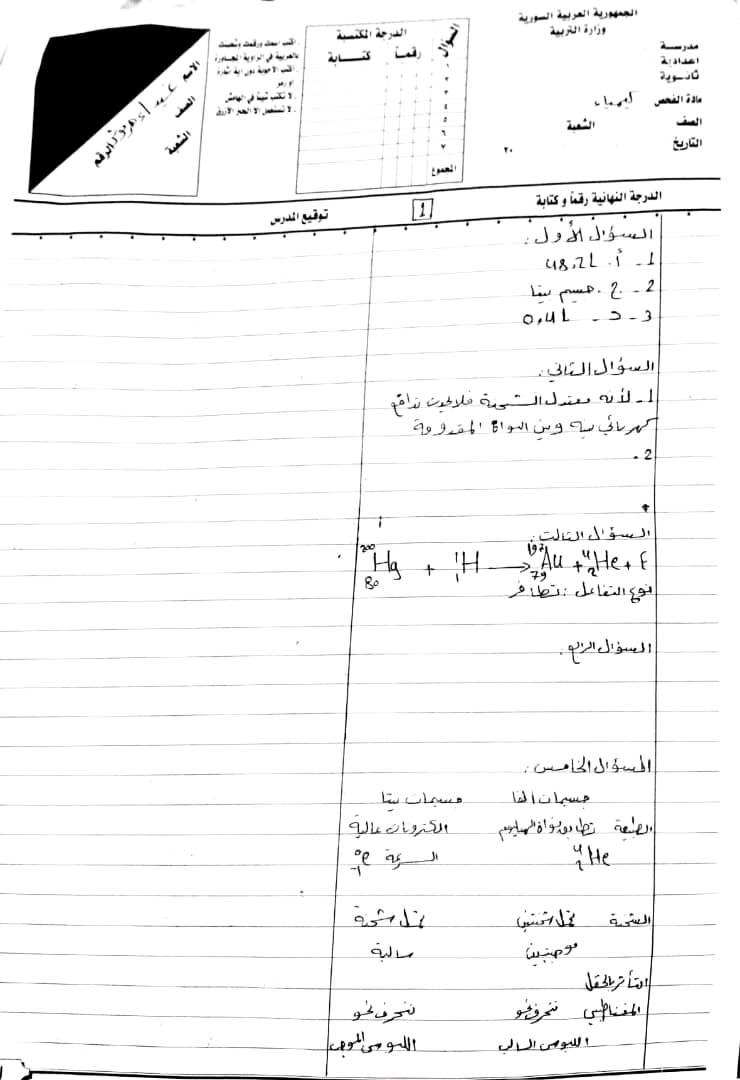 الجمهورية العربية السورية
وزارة التربية
مدرسة
اعدادية
ثانوية
مادة الفحص كيمياء
الصف الشعبة
التاريخ ٢٠
السؤال
الدرجة المكتسبة
رقماً كتابة
١
٢
٣
٤
٥
٦
٧
المجموع
اكتب اسمك ورقمك وشعبتك
بالعربية في الزاوية المجاورة
اكتب الاجوبة دون اية اشارة
او رمز
لا تكتب شيئاً في الهامش
لا تستعمل الا الحبر الأزرق
الاسم
الصف
الشعبة
الرقم
الدرجة النهائية رقماً و كتابة
1
توقيع المدرس
السؤال الأول:
1- أ. 48,2L
2- ج. جسيم بيتا
3- د- 0,4L
السؤال الثاني:
1- لأنه معتدل الشحنة فلا يحدث تدافع
كهربائي بينه وبين النواة المقذوفة
2.
السؤال الثالث:
²⁰⁰₈₀Hg + ¹₁H → ¹⁹⁷₇₉Au + ⁴₂He + E
نوع التفاعل: تطافر
السؤال الرابع:
السؤال الخامس:
جسيمات الفا جسيمات بيتا
الطبيعة تطابق نواة الهيليوم الكترونات عالية
⁴₂He السرعة ⁰₋₁e
الشحنة تحمل شحنتين تحمل شحنة
موجبتين سالبة
التأثر بالحقل
المغناطيسي تنحرف نحو تنحرف نحو
اللبوس السالب اللبوس الموجب